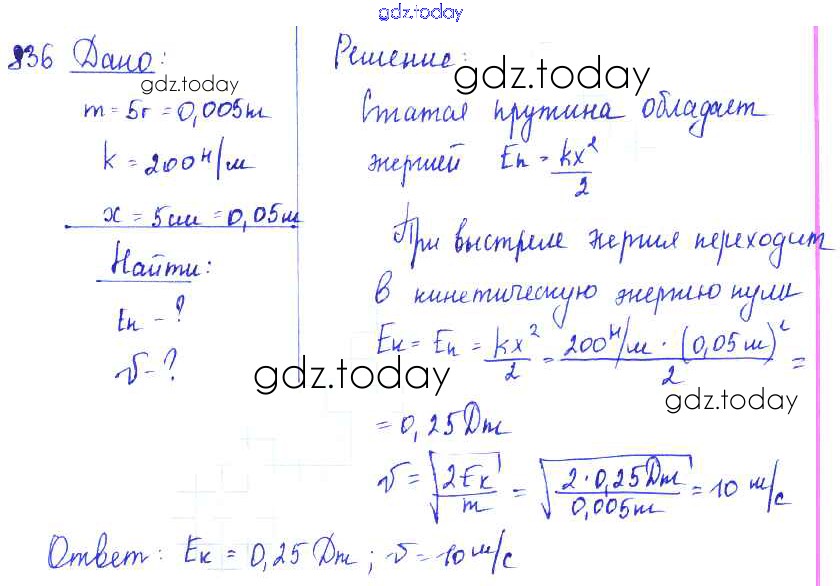 gdz.today
836 Дано:
gdz.today
m = 5г = 0,005кг
k = 200 Н/м
x = 5см = 0,05м
Найти:
Eп - ?
v - ?
Решение:
gdz.today
Сжатая пружина обладает
энергией Eп = kx²/2
При выстреле энергия переходит
в кинетическую энергию пули
Eк = Eп = kx²/2 = 200 Н/м · (0,05 м)²/2 =
gdz.today
gdz.today
= 0,25 Дж
v = √(2Eк/m) = √(2·0,25Дж/0,005кг) = 10 м/с
Ответ: Eк = 0,25 Дж; v = 10 м/с